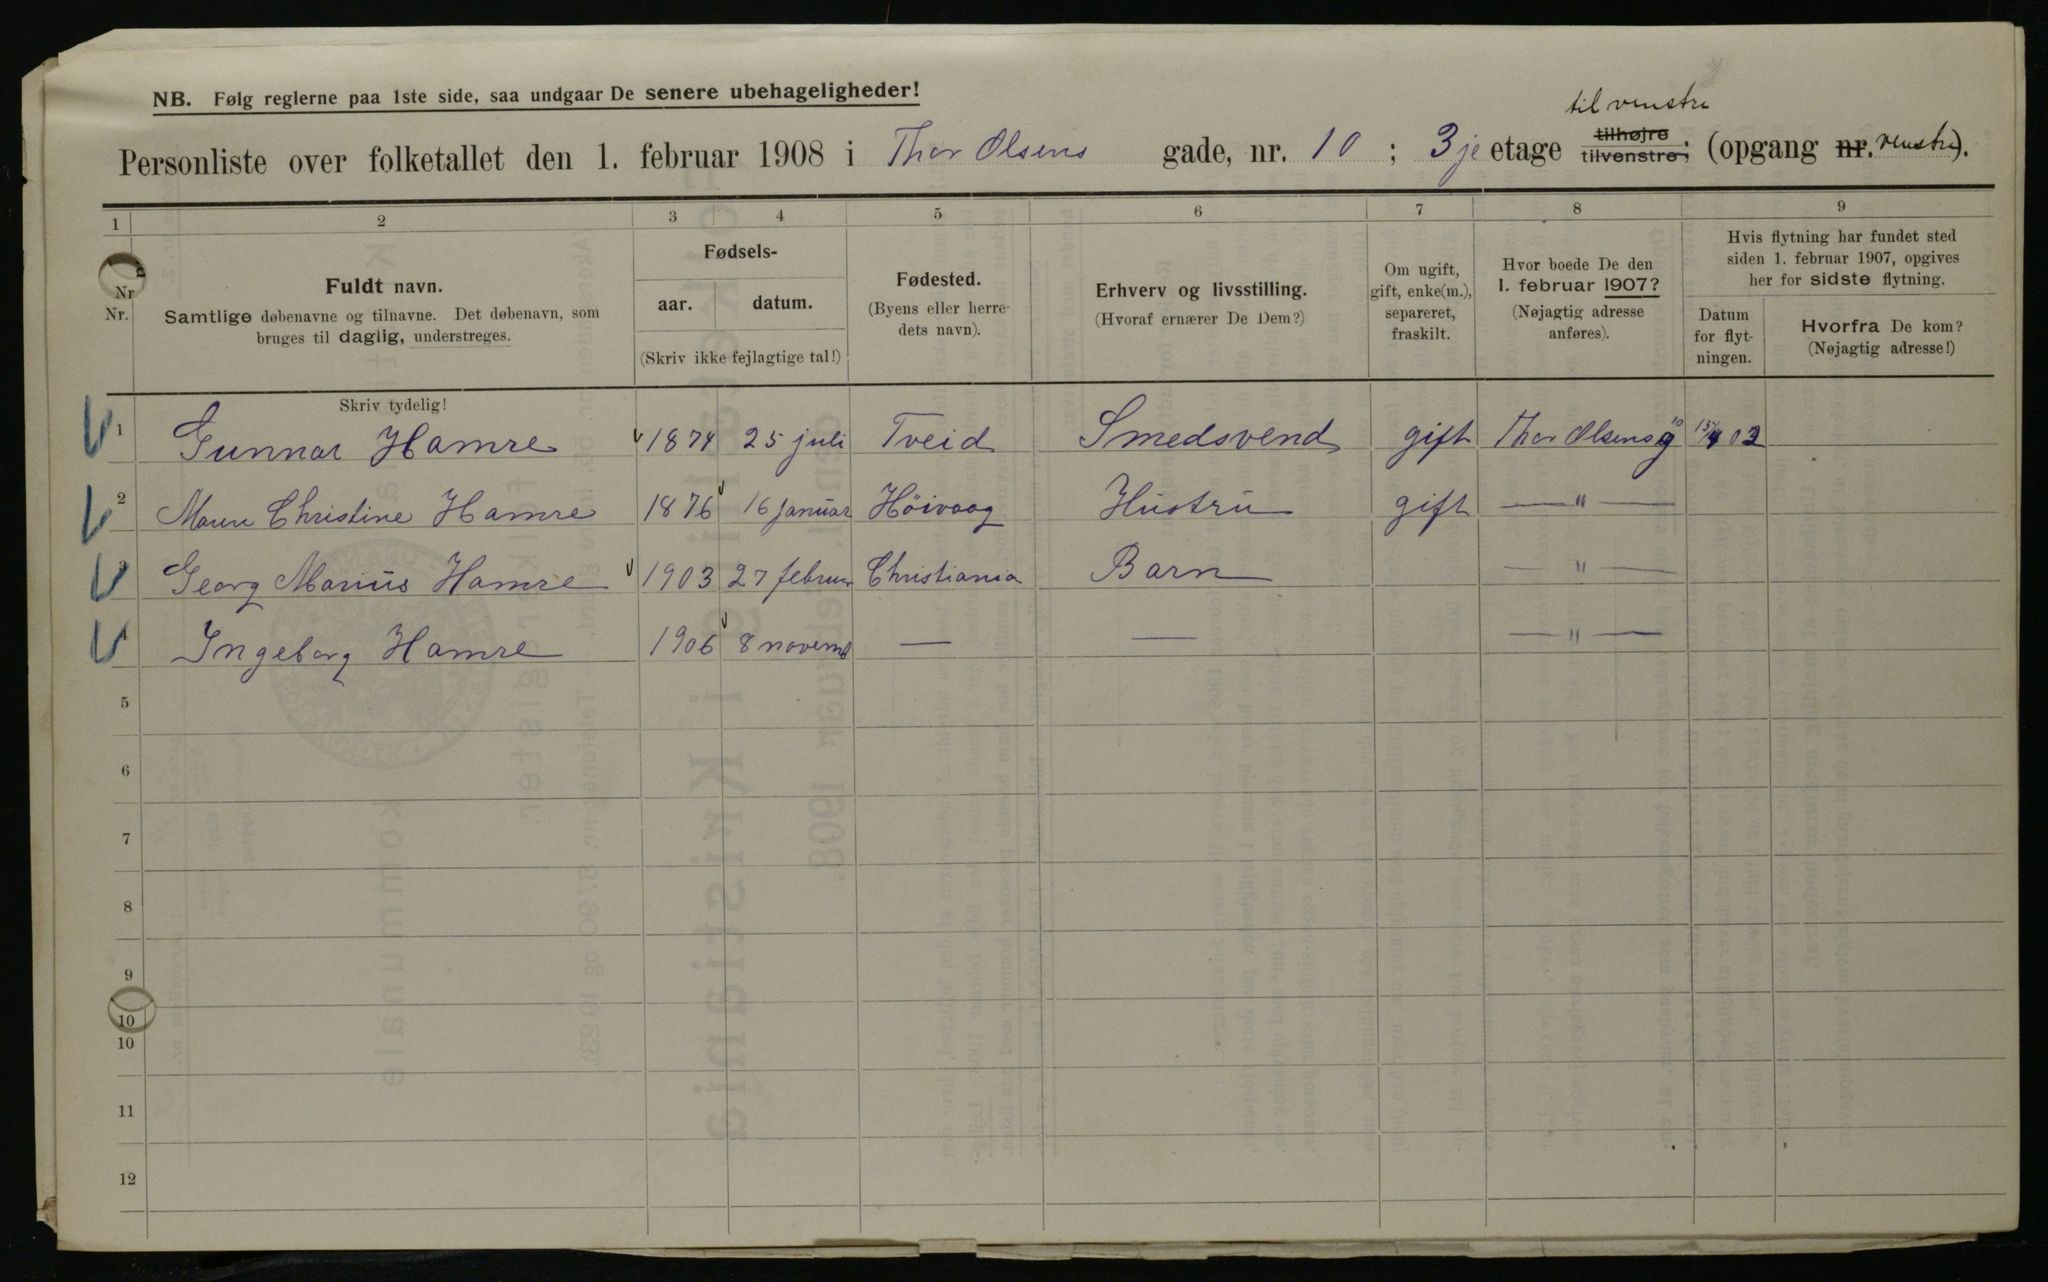 NB. Følg reglerne paa 1ste side, saa undgaar De senere ubehageligheder!
til venstre
Personliste over folketallet den 1. februar 1908 i Thor Olsens gade, nr. 10 ; 3je etage tilhøjre tilvenstre; (opgang nr. venstre).
1 2 3 4 5 6 7 8 9
Nr.
Nr.
Fuldt navn.
Samtlige døbenavne og tilnavne. Det døbenavn, som
bruges til daglig, understreges.
Fødsels-
aar. datum.
(Skriv ikke fejlagtige tal!)
Fødested.
(Byens eller herre-
dets navn).
Erhverv og livsstilling.
(Hvoraf ernærer De Dem?)
Om ugift,
gift, enke(m.),
separeret,
fraskilt.
Hvor boede De den
1. februar 1907?
(Nøjagtig adresse
anføres).
Hvis flytning har fundet sted
siden 1. februar 1907, opgives
her for sidste flytning.
Datum
for flyt-
ningen.
Hvorfra De kom?
(Nøjagtig adresse!)
Skriv tydelig!
1 Gunnar Hamre 1874 25 juli Tveid Smedsvend gift Thor Olsens g 10 15/4 03
2 Maren Christine Hamre 1876 16 januar Höivaag Hustru gift — " —
3 Georg Marius Hamre 1903 27 februar Christiania Barn — " —
4 Ingeborg Hamre 1906 8 novemb — — — " —
5
6
7
8
9
10
10
11
12